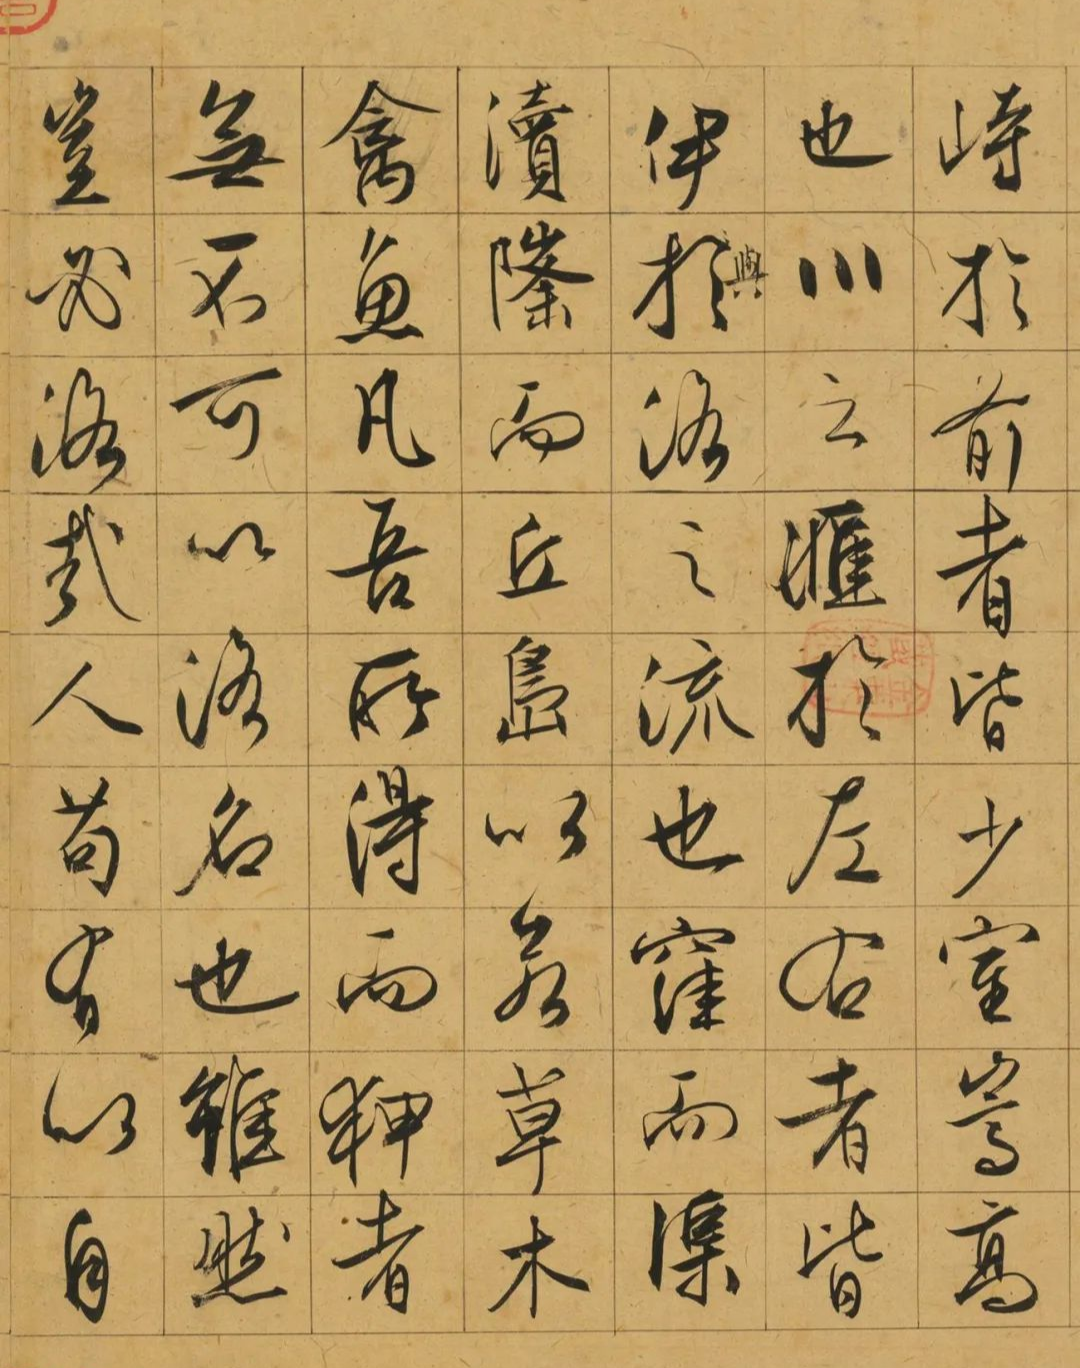 峙於前者皆少室嵩高
也川之匯於左右者皆
伊於與洛之流也窪而渠
瀆隆而丘島以若草木
禽魚凡吾所得而狎者
無不可以洛名也雖然
豈必洛哉人苟有以自